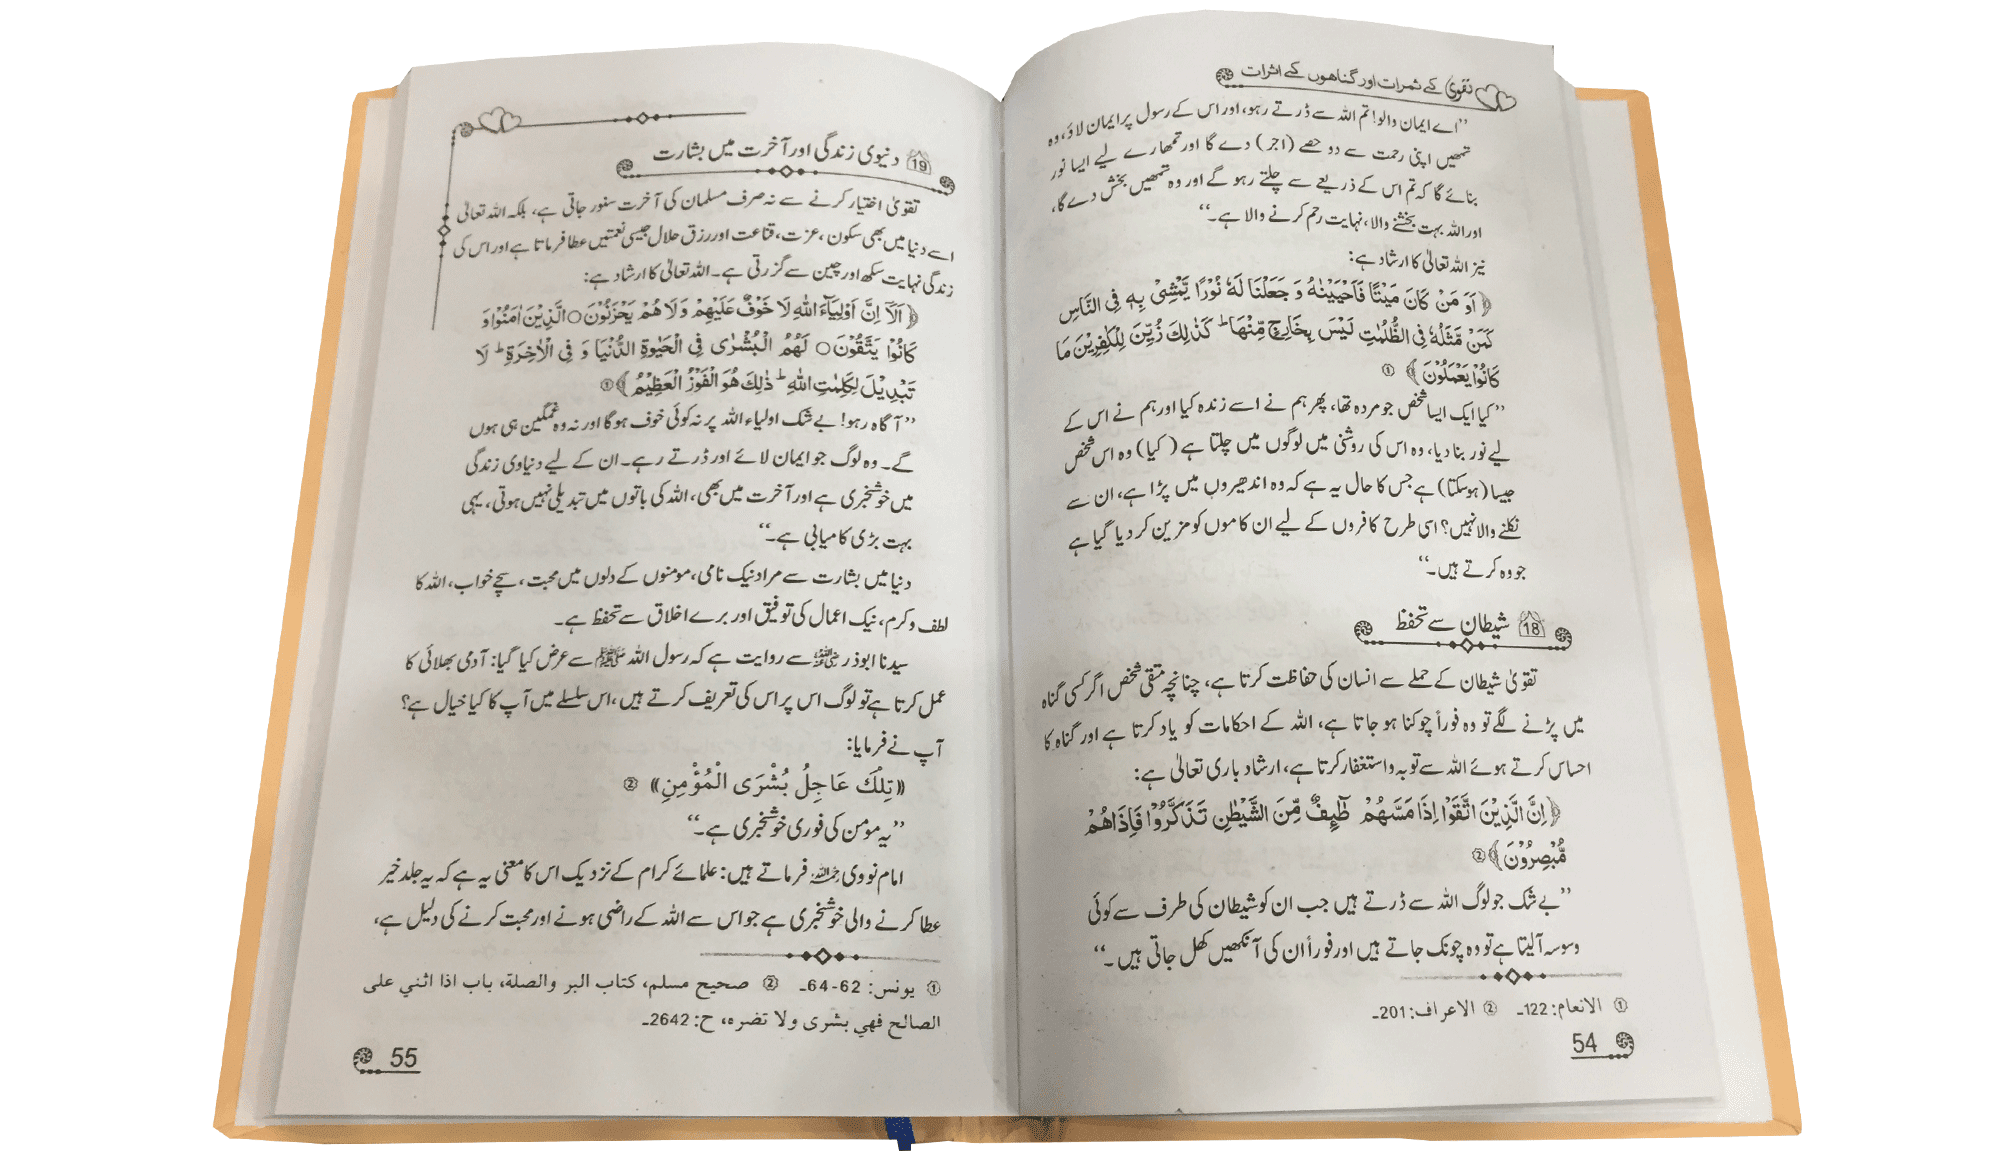 تقویٰ کے ثمرات اور گناھوں کے اثرات
”اے ایمان والو! تم اللہ سے ڈرتے رہو، اور اس کے رسول پر ایمان لاؤ، وہ
تمھیں اپنی رحمت سے دو حصے (اجر) دے گا اور تمھارے لیے ایسا نور
بنائے گا کہ تم اس کے ذریعے سے چلتے رہو گے اور وہ تمھیں بخش دے گا،
اور اللہ بہت بخشنے والا، نہایت رحم کرنے والا ہے۔“
نیز اللہ تعالیٰ کا ارشاد ہے:
﴿اَوَ مَنْ كَانَ مَيْتًا فَاَحْيَيْنٰهُ وَ جَعَلْنَا لَهٗ نُوْرًا يَّمْشِيْ بِهٖ فِي النَّاسِ
كَمَنْ مَّثَلُهٗ فِي الظُّلُمٰتِ لَيْسَ بِخَارِجٍ مِّنْهَا ؕ كَذٰلِكَ زُيِّنَ لِلْكٰفِرِيْنَ مَا
كَانُوْا يَعْمَلُوْنَ﴾ ①
”کیا ایک ایسا شخص جو مردہ تھا، پھر ہم نے اسے زندہ کیا اور ہم نے اس کے
لیے نور بنا دیا، وہ اس کی روشنی میں لوگوں میں چلتا ہے (کیا) وہ اس شخص
جیسا (ہوسکتا) ہے جس کا حال یہ ہے کہ وہ اندھیروں میں پڑا ہے، ان سے
نکلنے والا نہیں؟ اسی طرح کافروں کے لیے ان کاموں کو مزین کر دیا گیا ہے
جو وہ کرتے ہیں۔“
18 شیطان سے تحفظ
تقویٰ شیطان کے حملے سے انسان کی حفاظت کرتا ہے، چنانچہ متقی شخص اگر کسی گناہ
میں پڑنے لگے تو وہ فوراً چوکنا ہو جاتا ہے، اللہ کے احکامات کو یاد کرتا ہے اور گناہ کا
احساس کرتے ہوئے اللہ سے توبہ و استغفار کرتا ہے، ارشاد باری تعالیٰ ہے:
﴿اِنَّ الَّذِيْنَ اتَّقَوْا اِذَا مَسَّهُمْ طٰٓىِٕفٌ مِّنَ الشَّيْطٰنِ تَذَكَّرُوْا فَاِذَا هُمْ
مُّبْصِرُوْنَ﴾ ②
”بے شک جو لوگ اللہ سے ڈرتے ہیں جب ان کو شیطان کی طرف سے کوئی
وسوسہ آلیتا ہے تو وہ چونک جاتے ہیں اور فوراً ان کی آنکھیں کھل جاتی ہیں۔“
① الانعام: 122۔ ② الاعراف: 201۔
54
19 دنیوی زندگی اور آخرت میں بشارت
تقویٰ اختیار کرنے سے نہ صرف مسلمان کی آخرت سنور جاتی ہے، بلکہ اللہ تعالیٰ
اسے دنیا میں بھی سکون، عزت، قناعت اور رزق حلال جیسی نعمتیں عطا فرماتا ہے اور اس کی
زندگی نہایت سکھ اور چین سے گزرتی ہے۔ اللہ تعالیٰ کا ارشاد ہے:
﴿اَلَاۤ اِنَّ اَوْلِيَآءَ اللّٰهِ لَا خَوْفٌ عَلَيْهِمْ وَ لَا هُمْ يَحْزَنُوْنَ ○ الَّذِيْنَ اٰمَنُوْا وَ
كَانُوْا يَتَّقُوْنَ ○ لَهُمُ الْبُشْرٰى فِي الْحَيٰوةِ الدُّنْيَا وَ فِي الْاٰخِرَةِ ؕ لَا
تَبْدِيْلَ لِكَلِمٰتِ اللّٰهِ ؕ ذٰلِكَ هُوَ الْفَوْزُ الْعَظِيْمُ﴾ ①
”آگاہ رہو! بے شک اولیاء اللہ پر نہ کوئی خوف ہوگا اور نہ وہ غمگین ہی ہوں
گے۔ وہ لوگ جو ایمان لائے اور ڈرتے رہے۔ ان کے لیے دنیاوی زندگی
میں خوشخبری ہے اور آخرت میں بھی، اللہ کی باتوں میں تبدیلی نہیں ہوتی، یہی
بہت بڑی کامیابی ہے۔“
دنیا میں بشارت سے مراد نیک نامی، مومنوں کے دلوں میں محبت، سچے خواب، اللہ کا
لطف و کرم، نیک اعمال کی توفیق اور برے اخلاق سے تحفظ ہے۔
سیدنا ابوذر رضی اللہ عنہ سے روایت ہے کہ رسول اللہ ﷺ سے عرض کیا گیا: آدمی بھلائی کا
عمل کرتا ہے تو لوگ اس پر اس کی تعریف کرتے ہیں، اس سلسلے میں آپ کا کیا خیال ہے؟
آپ نے فرمایا:
«تِلْكَ عَاجِلُ بُشْرَى الْمُؤْمِنِ» ②
”یہ مومن کی فوری خوشخبری ہے۔“
امام نووی رحمہ اللہ فرماتے ہیں: علمائے کرام کے نزدیک اس کا معنی یہ ہے کہ یہ جلد خیر
عطا کرنے والی خوشخبری ہے جو اس سے اللہ کے راضی ہونے اور محبت کرنے کی دلیل ہے،
① یونس: 62-64۔ ② صحيح مسلم، كتاب البر والصلة، باب اذا اثني على
الصالح فهي بشرى ولا تضره، ح: 2642۔
55